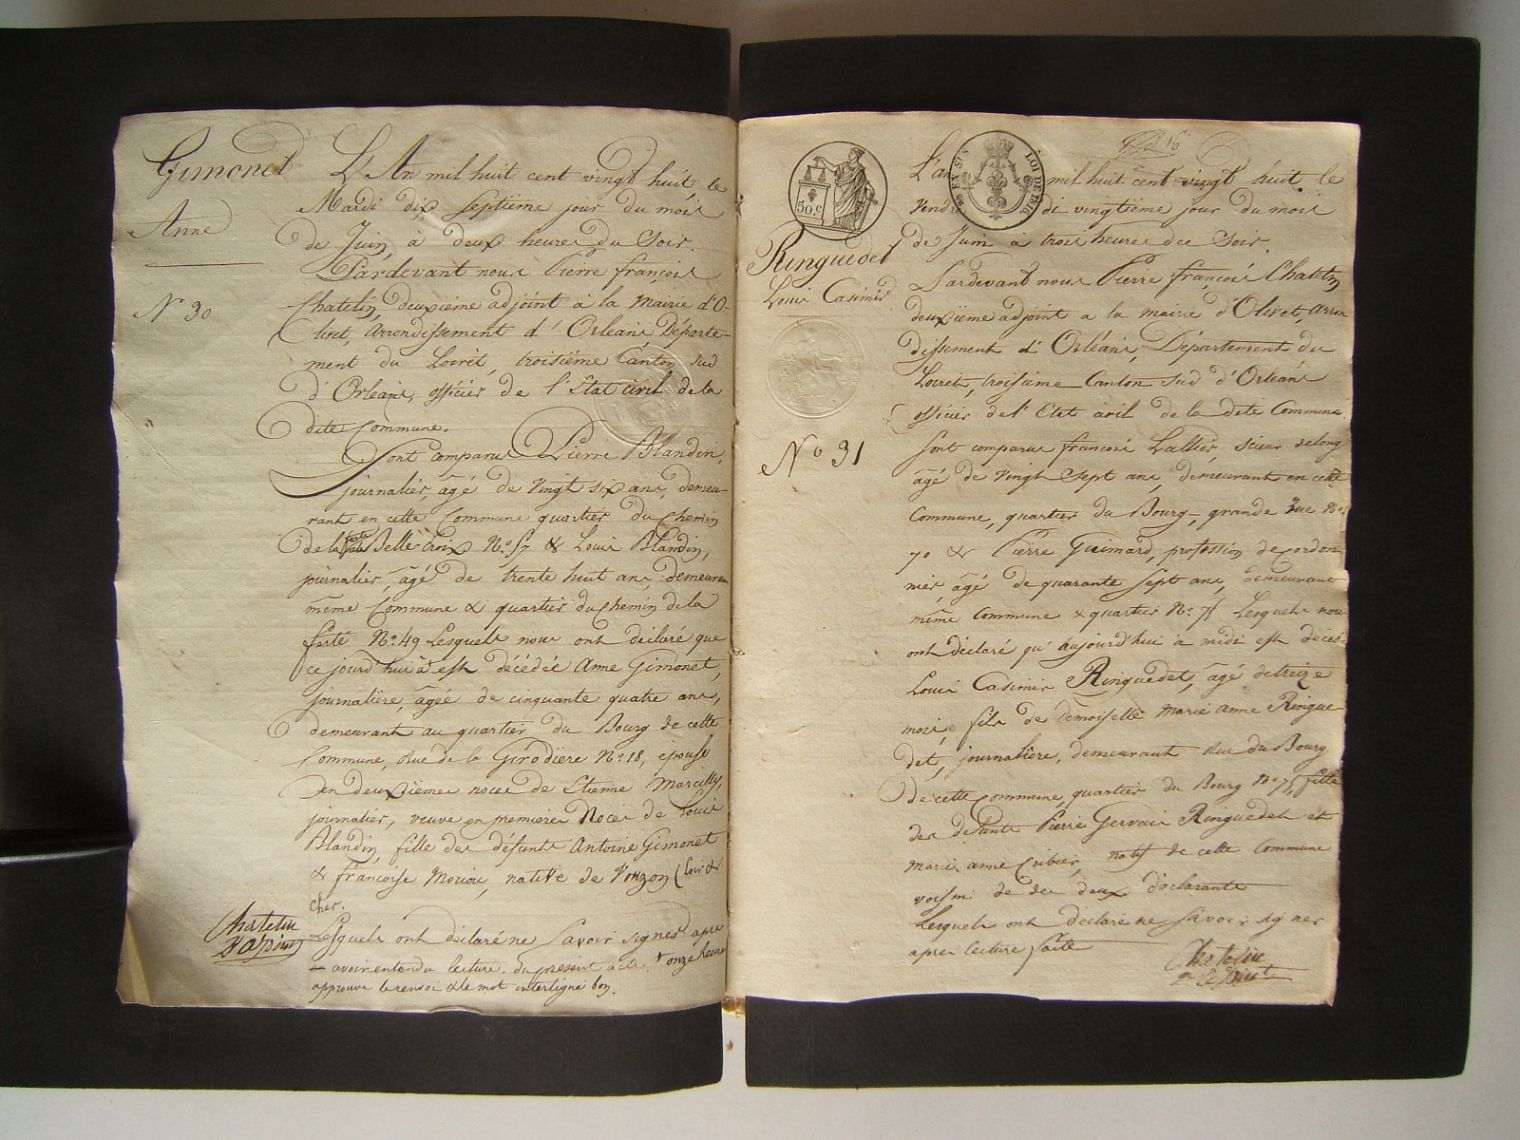 Gimonet
Anne
N° 30
L'An mil huit cent vingt huit le
Mardi dix septième jour du mois
de Juin à deux heures du Soir.
Pardevant nous Pierre françois
Chatelin, deuxième adjoint à la Mairie d'O-
livet, Arrondissement d'Orléans Départe-
ment du Loiret, troisième Canton sud
d'Orléans, officier de l'Etat civil de la
dite Commune.
Sont comparus Pierre Blandin,
journalier, âgé de vingt six ans, demeu-
rant en cette Commune quartier du chemin
de la Belle croix N° 57 & Louis Blandin,
journalier, âgé de trente huit ans, demeurant
même Commune & quartier du chemin de la
ferté N° 49 Lesquels nous ont déclaré que
ce jourd'hui à est décédée Anne Gimonet,
journalière, âgée de cinquante quatre ans,
demeurant au quartier du Bourg de cette
Commune, Rue de la Girodière N° 18, épouse
en deuxièmes noces de Etienne Marcilly,
journalier, veuve en premières Noces de Louis
Blandin, fille des défunts Antoine Gimonet
& françoise Moriau, native de Vouzon (Loir &
Cher.
Lesquels ont déclaré ne savoir signer après
avoir entendu lecture du présent acte. + onze heures
approuvé le renvoi & le mot interligné bon.
Chatelin
adjoint
16
50.c
LOI DE 1816
Ringuedet
Louis Casimir
N° 31
L'an mil huit cent vingt huit. le
Vendredi vingtième jour du mois
de Juin à trois heures du Soir.
Pardevant nous Pierre françois Chatelin
deuxième adjoint a la mairie d'Olivet, Arron
dissement d'Orléans, Département du
Loiret, troisième Canton Sud d'Orléans
officier de l'Etat civil de la dite Commune
sont comparus françois Lallier, scieur de long
âgé de vingt sept ans, demeurant en cette
Commune, quartier du Bourg, grande Rue N°
70 & Pierre Guimard, profession de cordon
nier, âgé de quarante sept ans, demeurant
même Commune & quartier N° 75 Lesquels nous
ont déclaré qu'aujourd'hui à midi est décédé
Louis Casimir Ringuedet, âgé de treize
mois, fils de demoiselle Marie Anne Ringue
det, journalière, demeurant Rue du Bourg
de cette Commune, quartier du Bourg N° 75, fille
des défunts Pierre Gervais Ringuedet et
Marie Anne Cribier, natif de cette Commune
voisin de des deux déclarants
Lesquels ont déclaré ne savoir signer
après lecture faite
Chatelin
adjoint